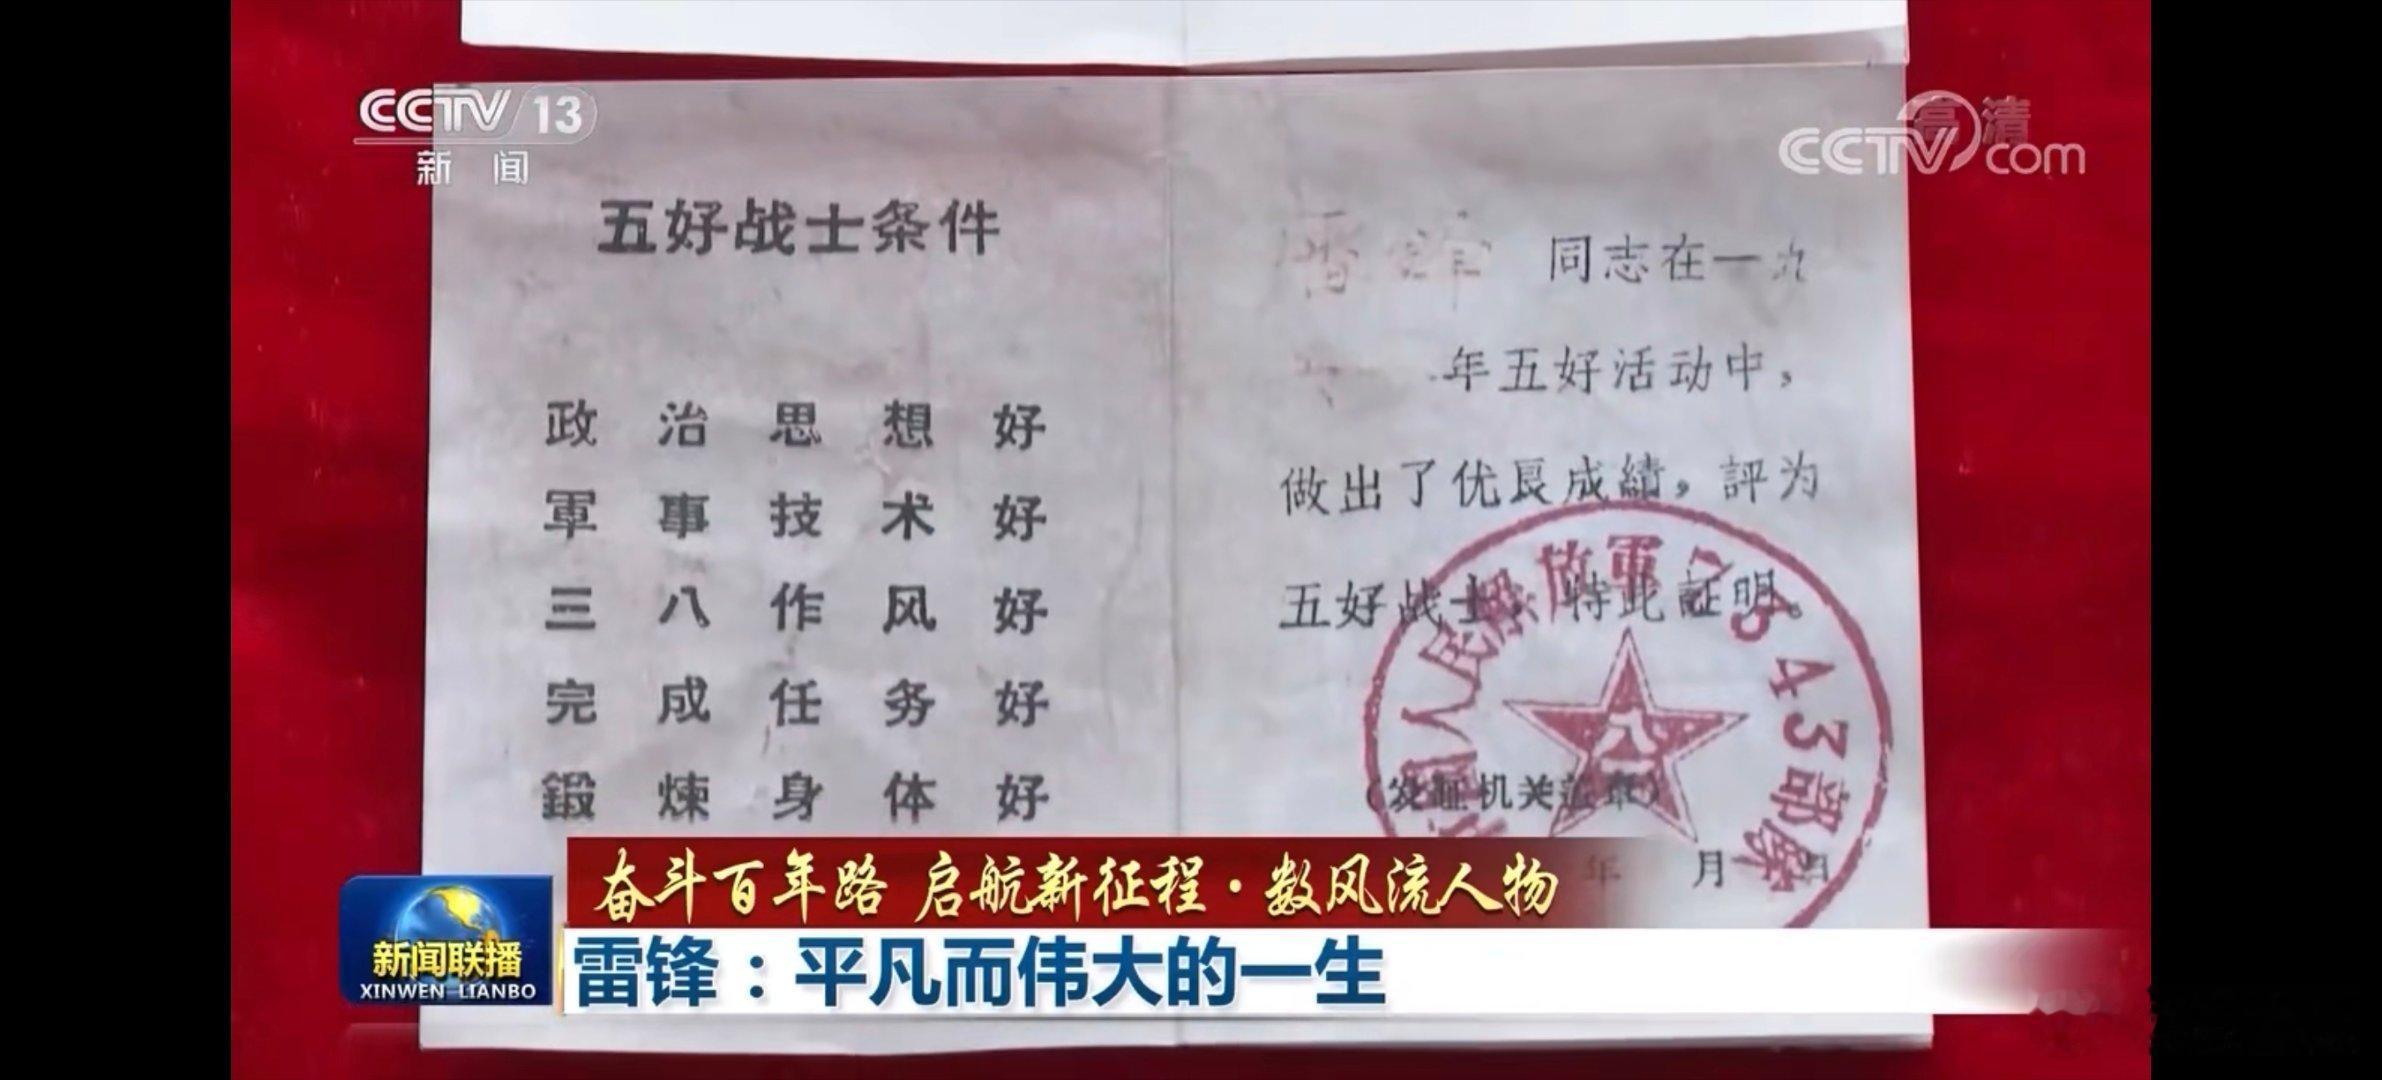 CCTV 13
新闻
高清
CCTV com
五好战士条件
政治思想好
軍事技术好
三八作风好
完成任务好
鍛煉身体好
雷锋 同志在一九
年五好活动中，
做出了优良成績，評为
五好战士，特此証明。
中国人民解放軍 43部隊
(发証机关盖章)
年 月 日
奋斗百年路 启航新征程·数风流人物
新闻联播
XINWEN LIANBO
雷锋：平凡而伟大的一生